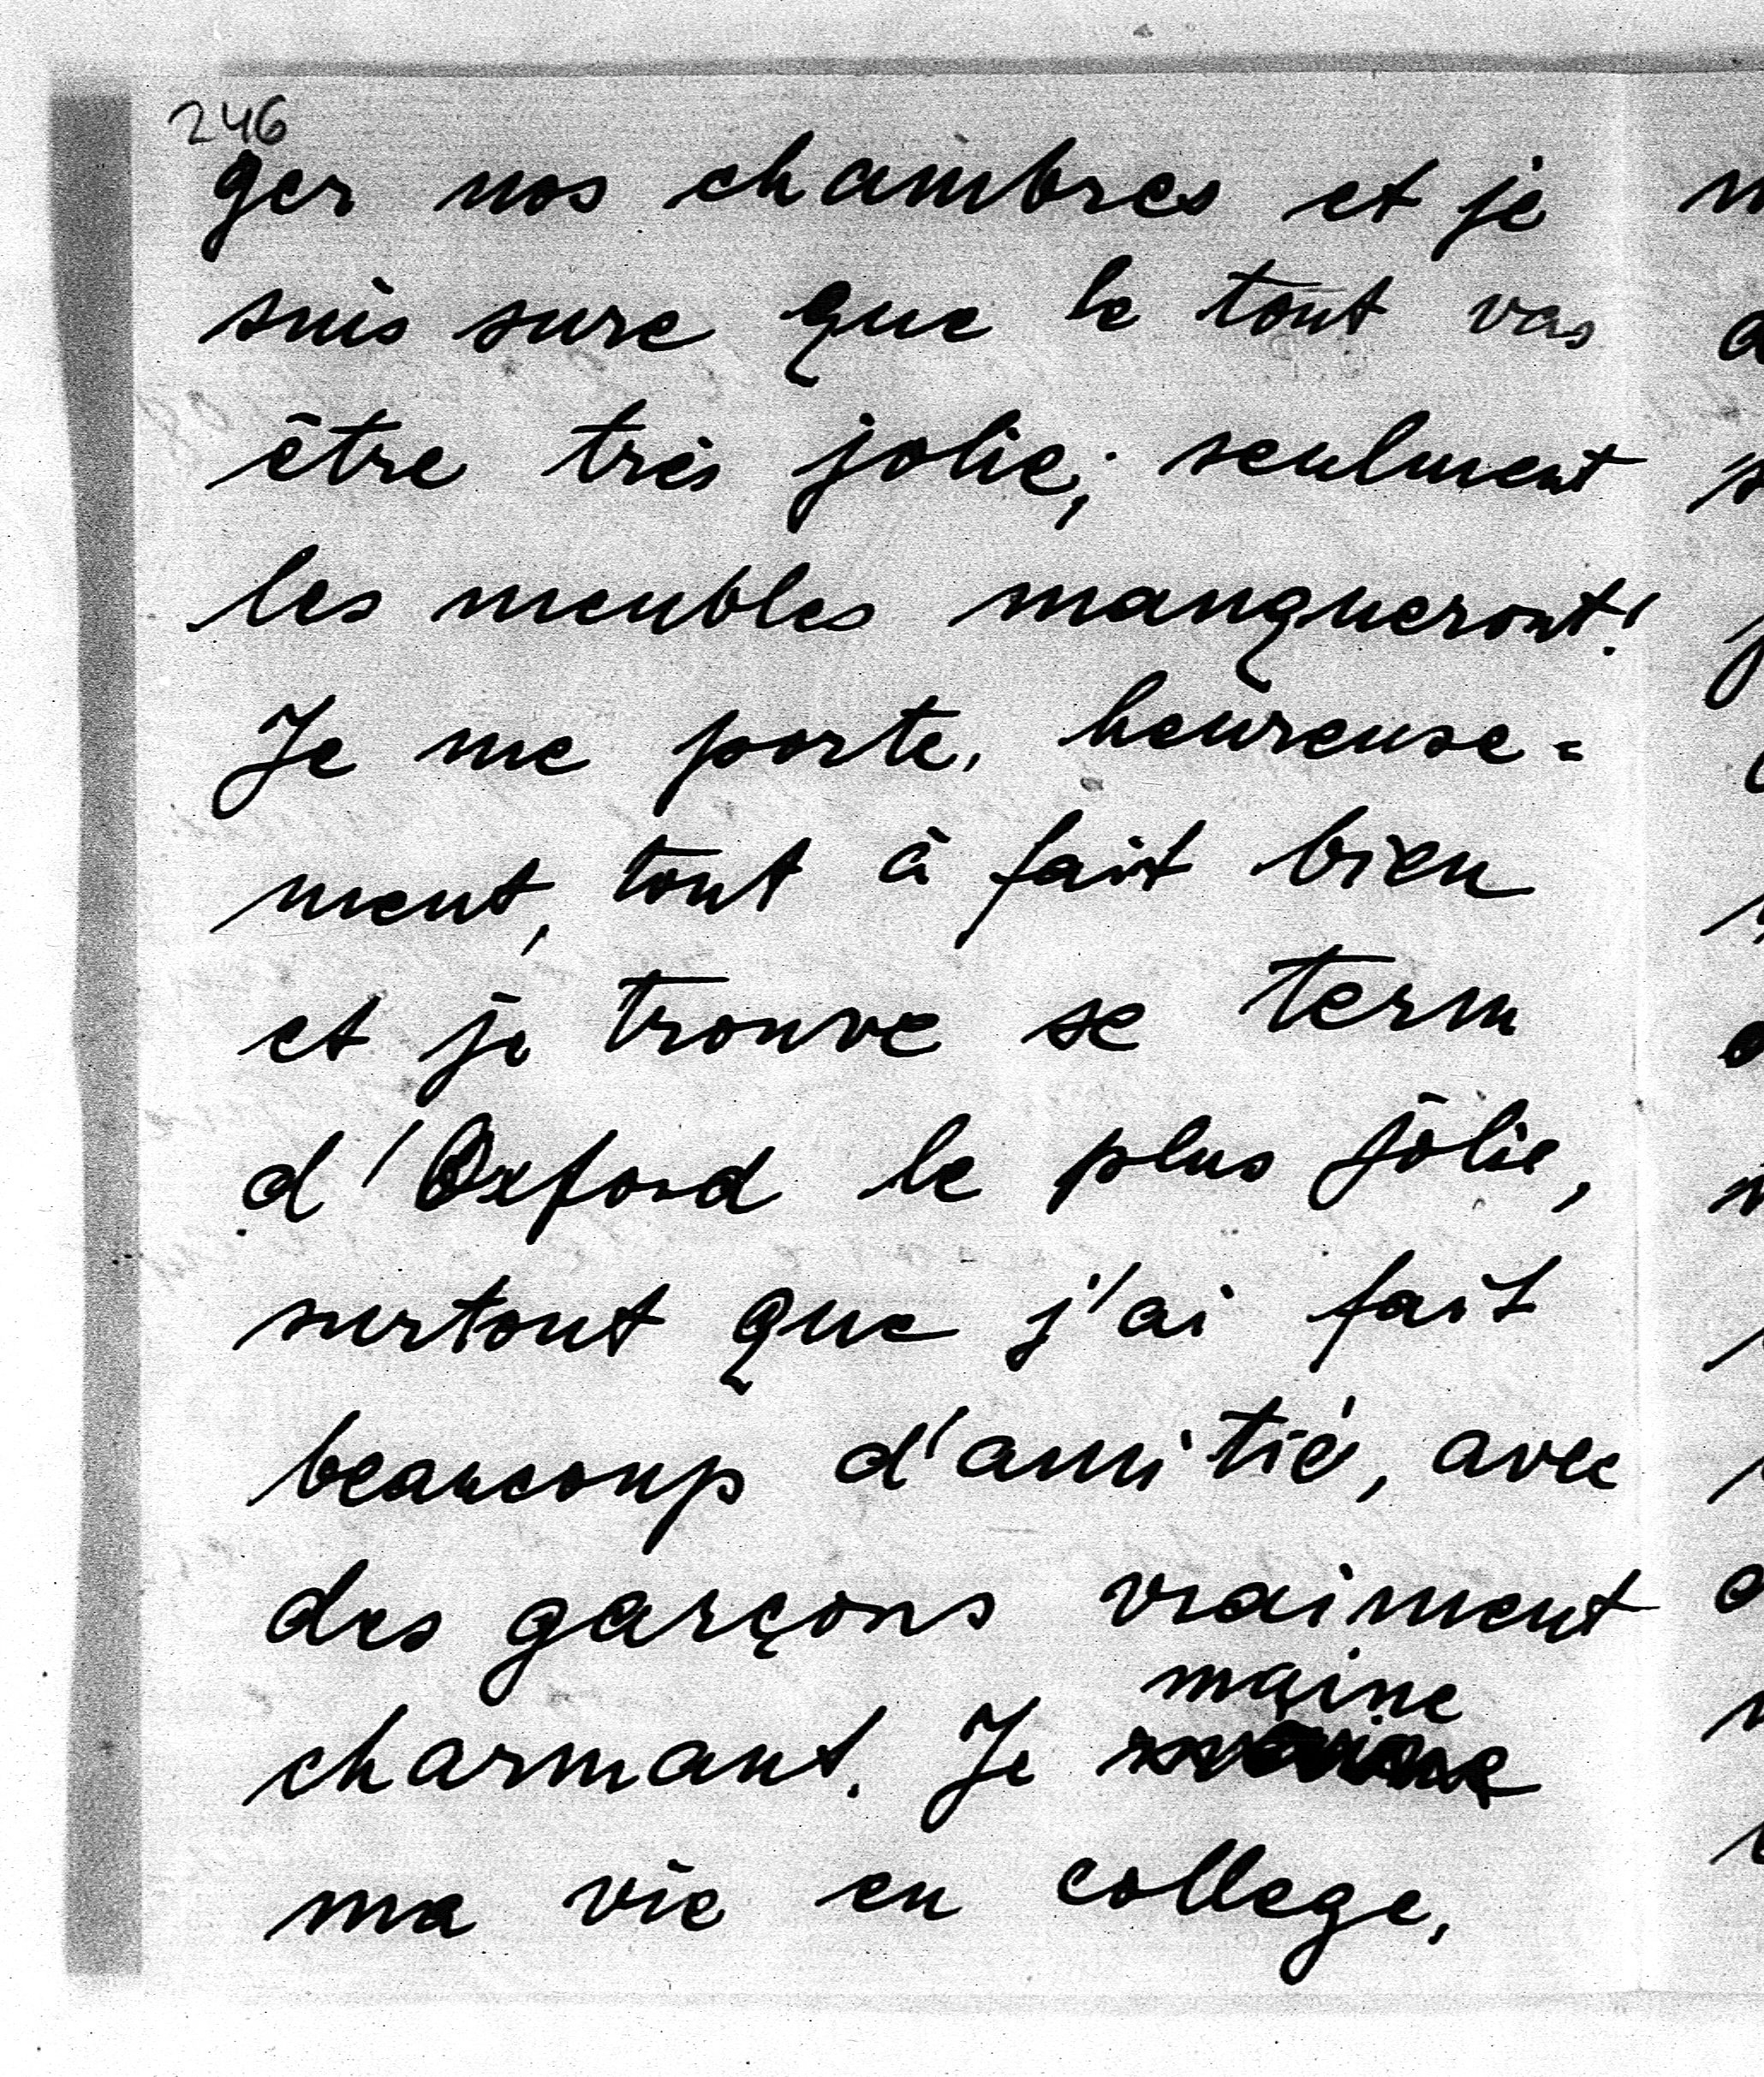 246
ger nos chambres et je
suis sure que le tout vas
être très jolie; seulment
les meubles manqueront!
Je me porte, heureuse=
ment, tout à fait bien
et je trouve se term
d'Oxford le plus jolie,
surtout que j'ai fait
beaucoup d'amitié, avec
des garçons vraiment
maine
charmant. Je
ma vie en college,